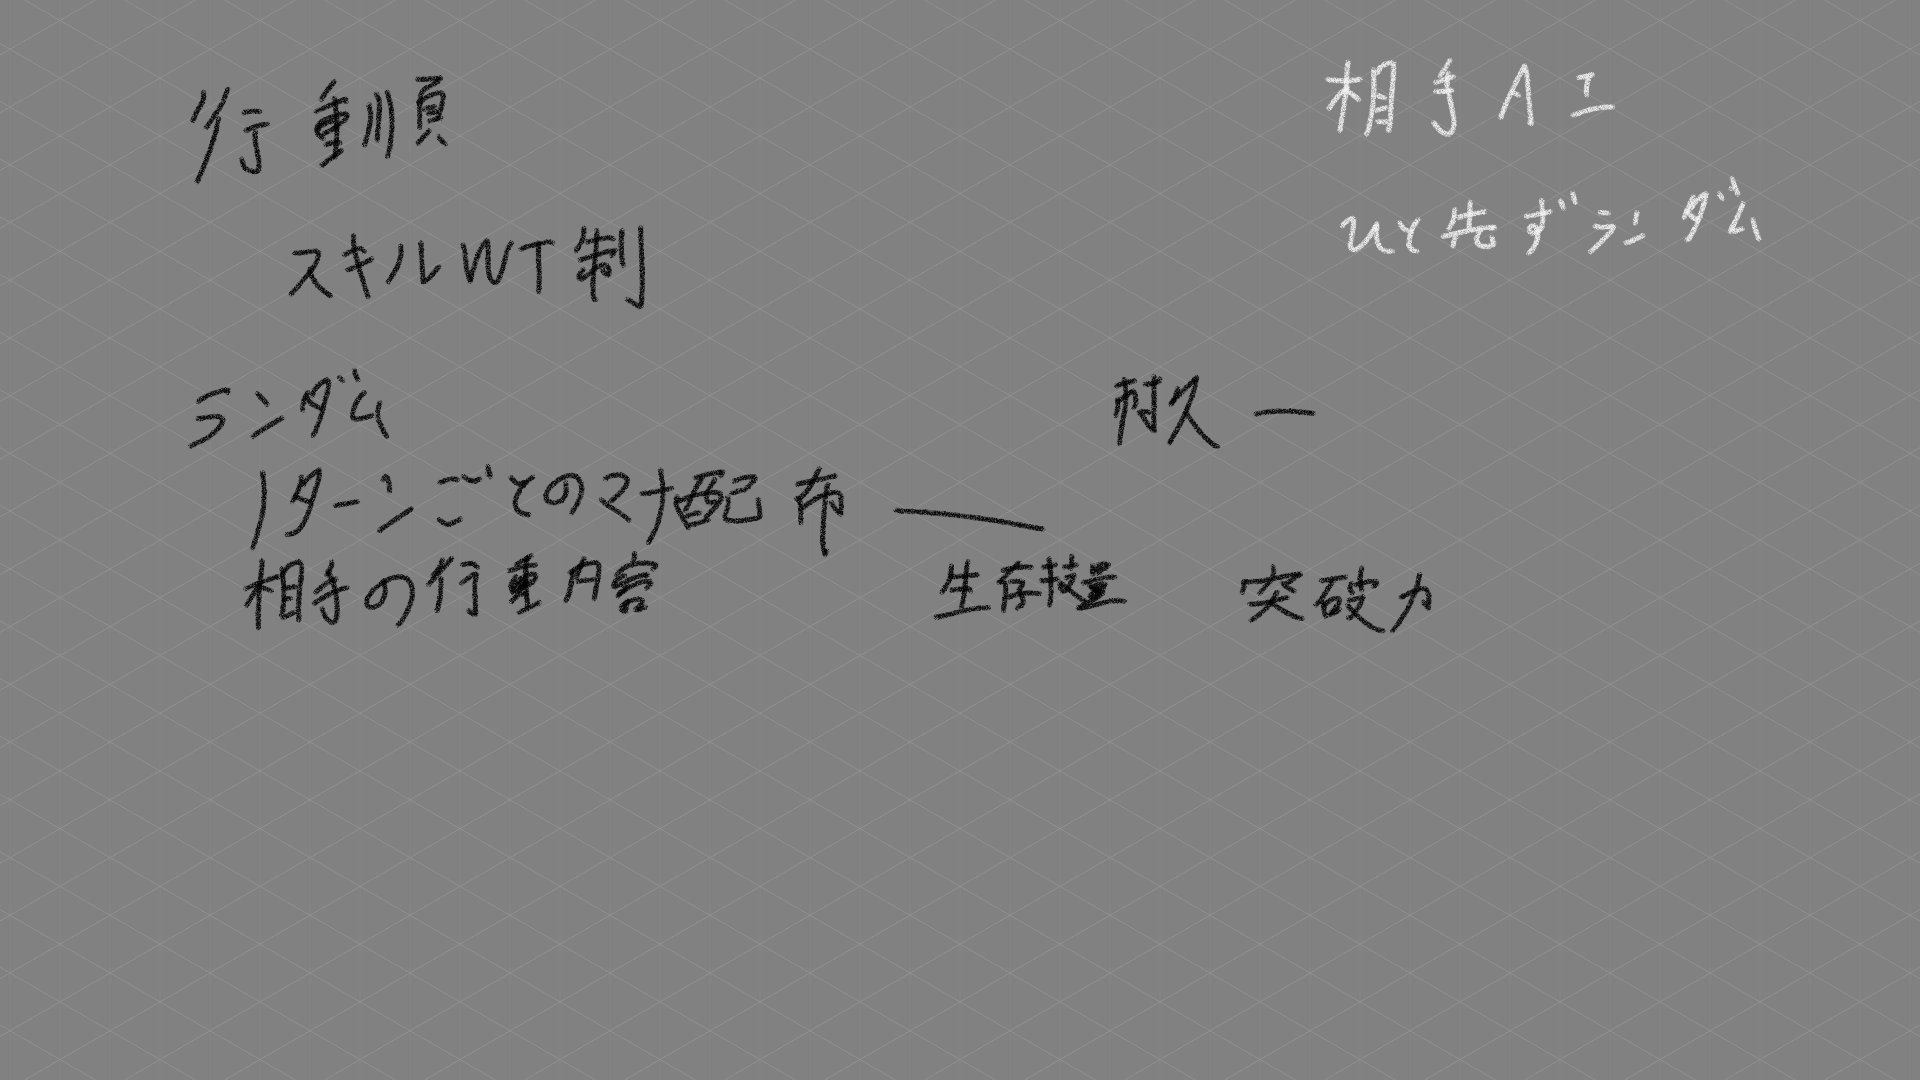 行動順
スキルWT制
相手AI
ひと先ずランダム
ランダム
1ターンごとのマナ配布 ―
相手の行動内容
耐久 ー
生存技量
突破力